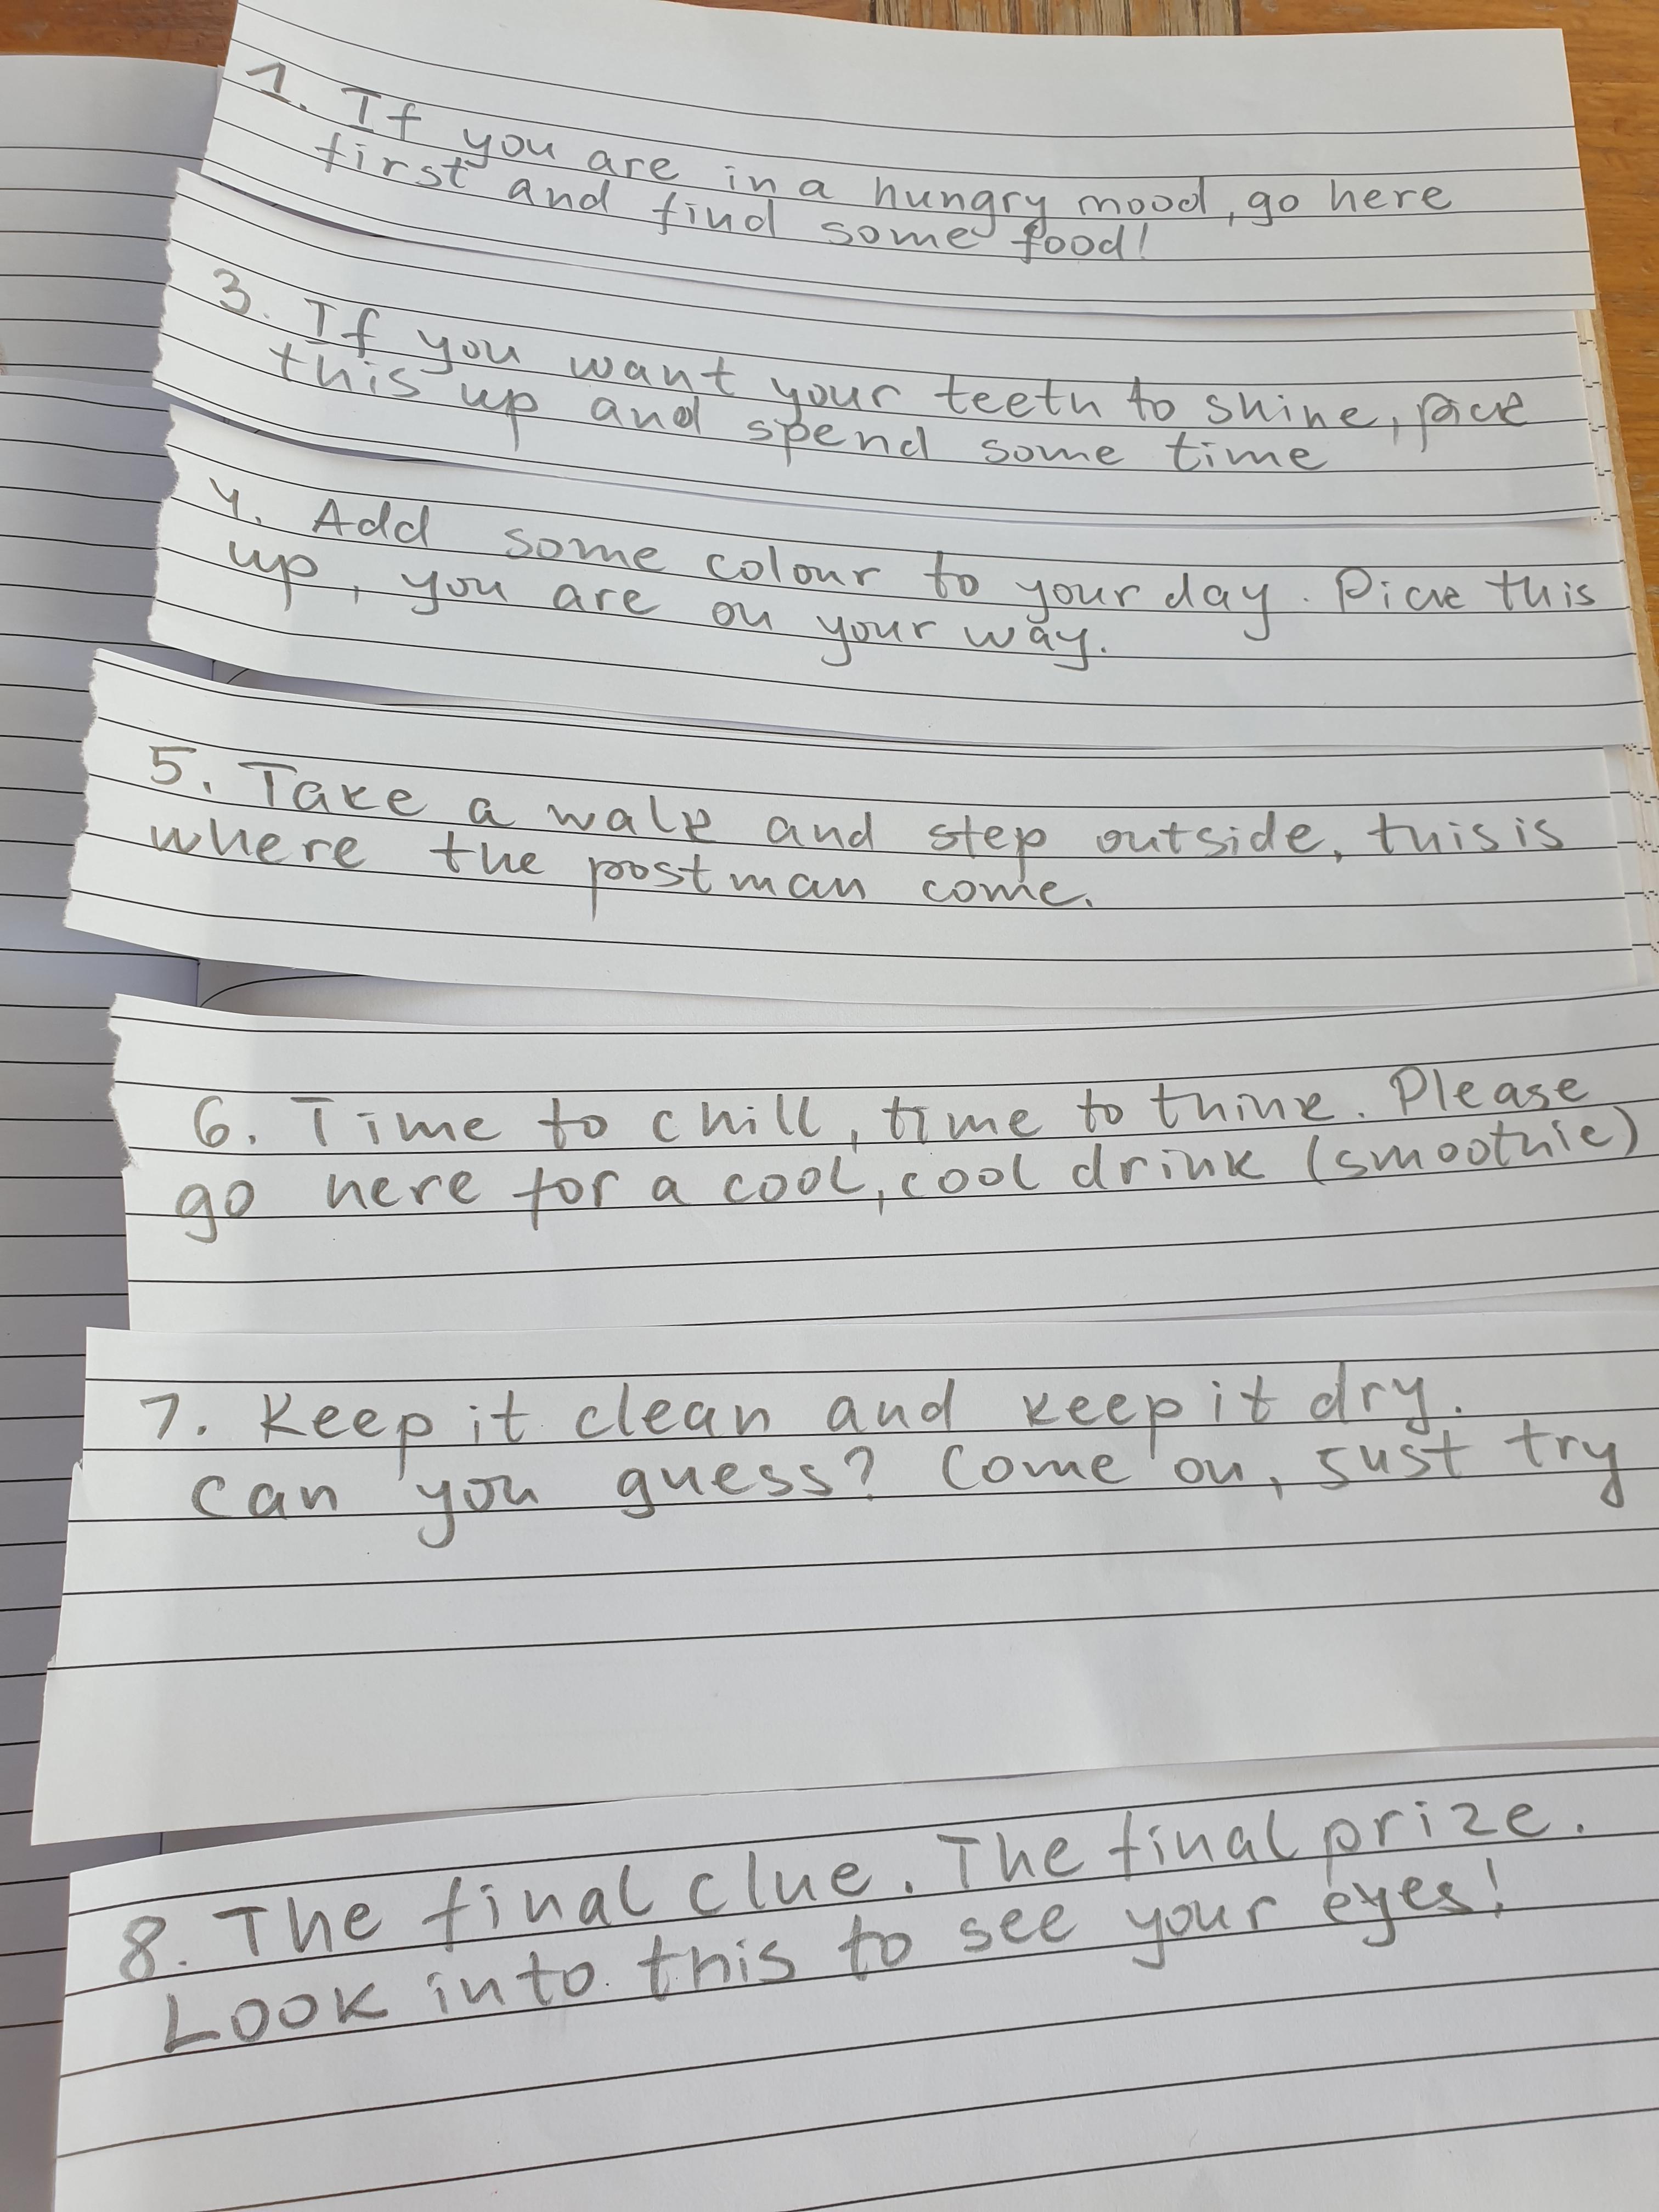 1. If you are in a hungry mood, go here
first and find some food!
3. If you want your teeth to shine, pick
this up and spend some time
4. Add some colour to your day. Pick this
up, you are on your way.
5. Take a walk and step outside, this is
where the postman come.
6. Time to chill, time to think. Please
go here for a cool, cool drink (smoothie)
7. Keep it clean and keep it dry.
can you guess? Come on, just try
8. The final clue. The final prize.
Look into this to see your eyes!